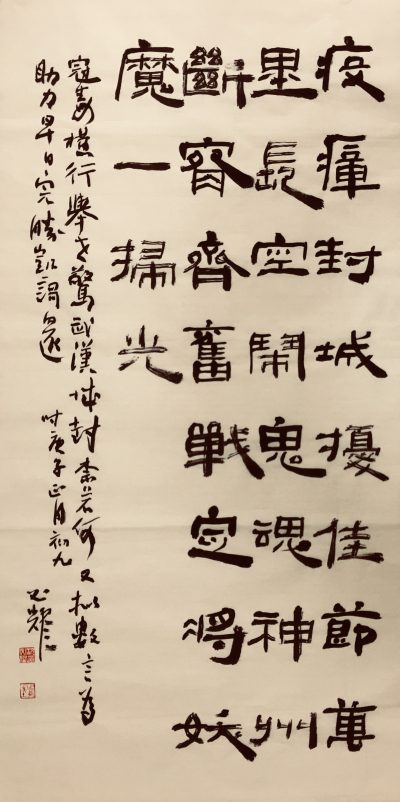 疫瘴封城擾佳節萬
里長空鬧鬼魂神州
斷宵齊奮戰定將妖
魔一掃光
冠毒橫行舉世驚武漢城封柰若何又擬數言為
助力早日完勝凱謌還 時庚子正月初九